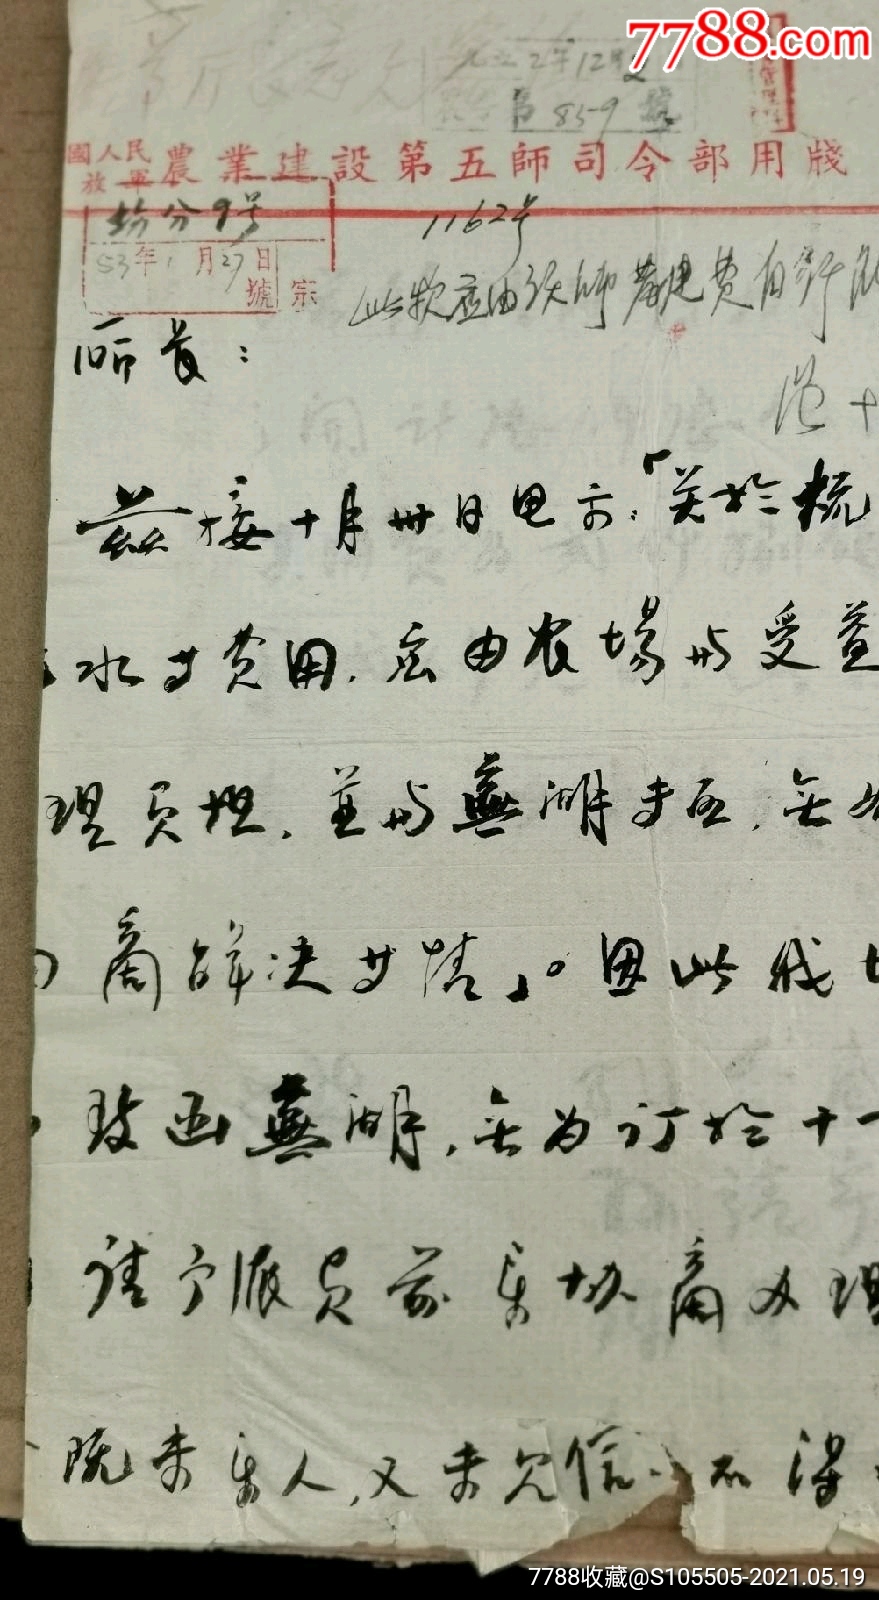 7788.com
2年12月
第859號
國人民
放軍
農業建設第五師司令部用牋
場分9号
53年1月27日
宗
號
1162号
此款应由该师农建费自行
范十
师首：
兹接十月卅日电示：「关於
水女费用，应由农場与受益
理负担，並与蕪湖专区，无
商解决为情」。因此我
致函蕪湖，无为订於十一
请予派员前来协商办理
既未来人，又未见信，不得
7788收藏@S105505-2021.05.19